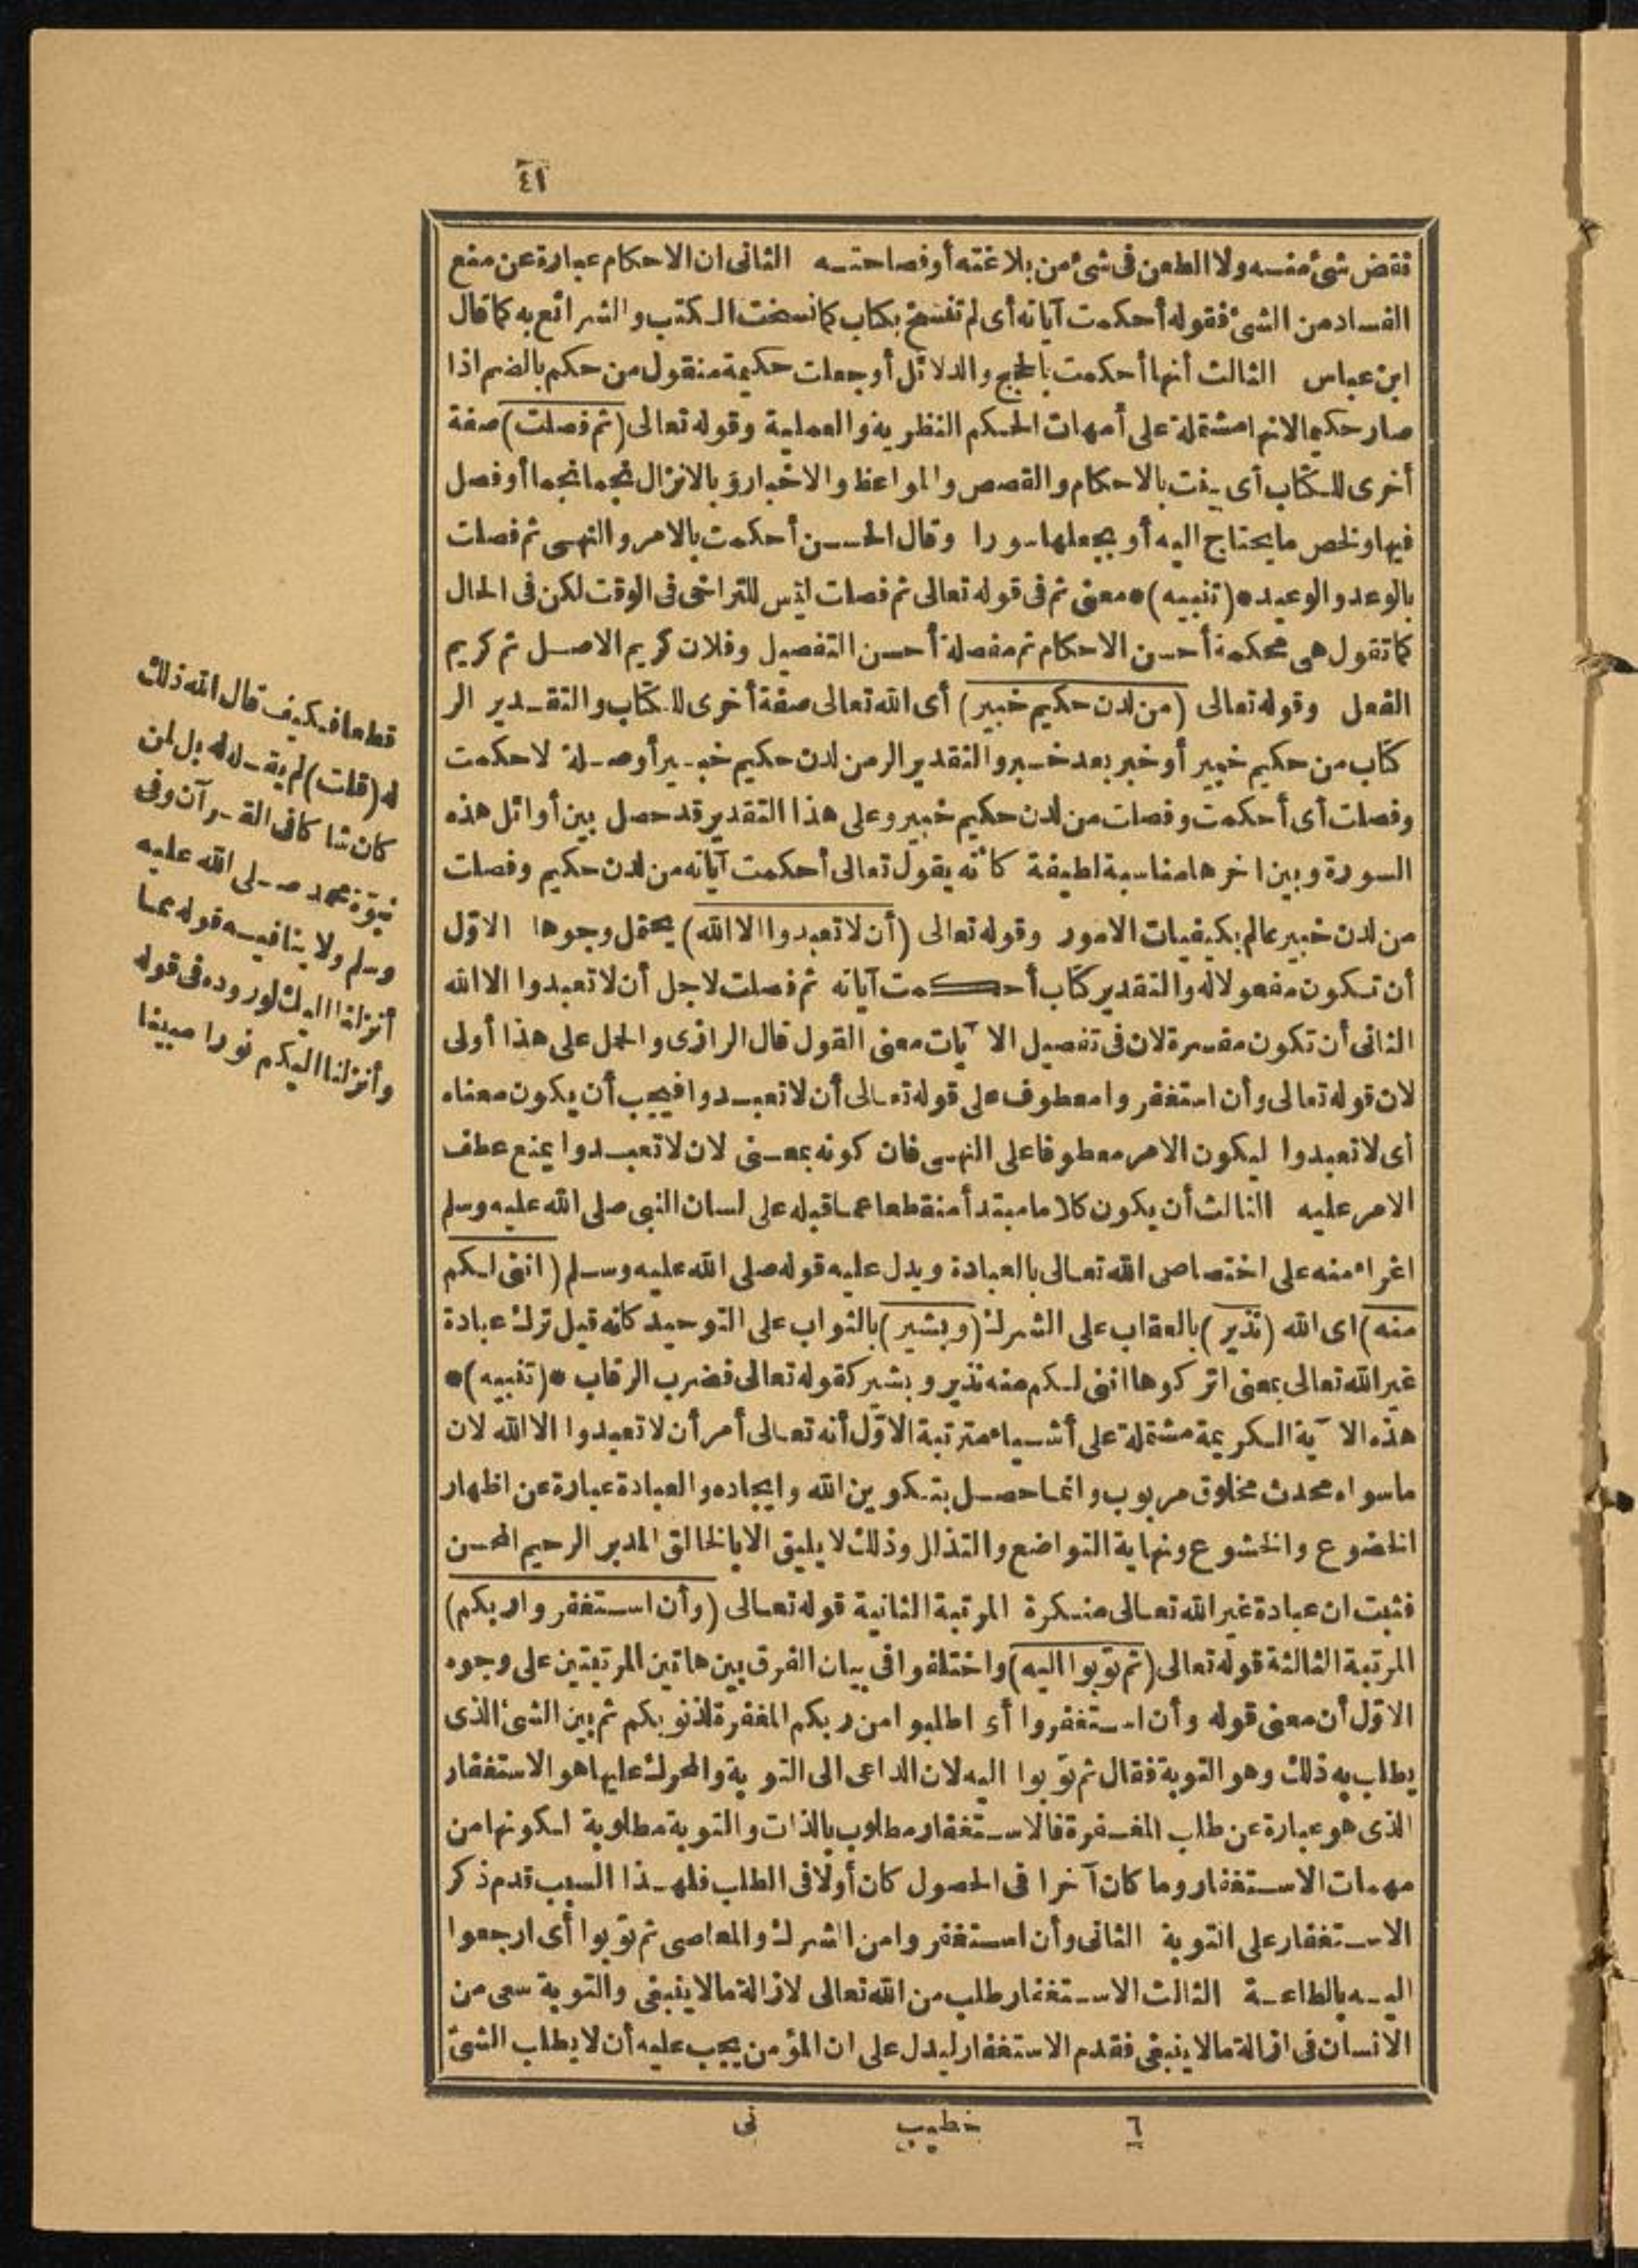 ٤١
نقض شئ منسه ولا الطعن فى شئ من بلاغته أوفصاحتسه الثانى ان الاحكام عبارة عن منع
الفساد من الشئ فقوله أحكمت آياته أى لم تنسخ بكتاب كما نسخت الكتب والشرائع به كما قال
ابن عباس الثالث أنها أحكمت بالحجج والدلائل أو جعلت حكيمة منقول من حكم بالضم اذا
صار حكيما لانها مشتملة على أمهات الحكم النظرية والعملية وقوله تعالى (ثم فصلت) صفة
أخرى للكتاب أى بينت بالاحكام والقصص والمواعظ والاخبار أو بالانزال نجما نجما أوفصل
فيها ولخص ما يحتاج اليه أو بجعلها سورا وقال الحسن أحكمت بالامر والنهى ثم فصلت
بالوعد والوعيد *(تنبيه)* معنى ثم فى قوله تعالى ثم فصلت ليس للتراخى فى الوقت لكن فى الحال
كما تقول هى محكمة أحسن الاحكام ثم مفصلة أحسن التفصيل وفلان كريم الاصل ثم كريم
الفعل وقوله تعالى (من لدن حكيم خبير) أى الله تعالى صفة أخرى للكتاب والتقدير الر
كتاب من حكيم خبير أو خبر بعد خبر والتقدير الر من لدن حكيم خبير أو صلة لاحكمت
وفصلت أى أحكمت وفصلت من لدن حكيم خبير وعلى هذا التقدير قد حصل بين أوائل هذه
السورة وبين اخرها مناسبة لطيفة كأنه يقول تعالى أحكمت آياته من لدن حكيم وفصلت
من لدن خبير عالم بكيفيات الامور وقوله تعالى (أن لا تعبدوا الا الله) يحتمل وجوها الاوّل
أن تكون مفعولا له والتقدير كتاب أحكمت آياته ثم فصلت لاجل أن لا تعبدوا الا الله
الثانى أن تكون مفسرة لان فى تفصيل الآيات معنى القول قال الرازى والحمل على هذا أولى
لان قوله تعالى وأن استغفروا معطوف على قوله تعالى أن لا تعبدوا فيجب أن يكون معناه
أى لا تعبدوا ليكون الامر معطوفا على النهى فان كونه بمعنى لان لا تعبدوا يمنع عطف
الامر عليه الثالث أن يكون كلاما مبتدأ منقطعا عما قبله على لسان النبى صلى الله عليه وسلم
اغراء منه على اختصاص الله تعالى بالعبادة ويدل عليه قوله صلى الله عليه وسلم (اننى لكم
منه) اى الله (نذير) بالعقاب على الشرك (وبشير) بالثواب على التوحيد كانه قيل ترك عبادة
غير الله تعالى بمعنى اتركوها اننى لكم منه نذير وبشير كقوله تعالى فضرب الرقاب *(تنبيه)*
هذه الآية الكريمة مشتملة على أشياء مترتبة الاوّل أنه تعالى أمر أن لا تعبدوا الا الله لان
ما سواه محدث مخلوق مربوب وانما حصل بتكوين الله وايجاده والعبادة عبارة عن اظهار
الخضوع والخشوع ونهاية التواضع والتذلل وذلك لا يليق الا بالخالق المدبر الرحيم المحسن
فثبت ان عبادة غير الله تعالى منكرة المرتبة الثانية قوله تعالى (وأن استغفروا ربكم)
المرتبة الثالثة قوله تعالى (ثم توبوا اليه) واختلفوا فى بيان الفرق بين هاتين المرتبتين على وجوه
الاوّل أن معنى قوله وأن استغفروا أى اطلبوا من ربكم المغفرة لذنوبكم ثم بين الشئ الذى
يطلب به ذلك وهو التوبة فقال ثم توبوا اليه لان الداعى الى التوبة والمحرك عليها هو الاستغفار
الذى هو عبارة عن طلب المغفرة فالاستغفار مطلوب بالذات والتوبة مطلوبة لكونها من
مهمات الاستغفار وما كان آخرا فى الحصول كان أولا فى الطلب فلهذا السبب قدم ذكر
الاستغفار على التوبة الثانى وأن استغفروا من الشرك والمعاصى ثم توبوا أى ارجعوا
اليه بالطاعة الثالث الاستغفار طلب من الله تعالى لازالة ما لا ينبغى والتوبة سعى من
الانسان فى ازالة ما لا ينبغى فقدم الاستغفار ليدل على ان المؤمن يجب عليه أن لا يطلب الشئ
٦ خطيب نى
قطعا فكيف قال الله ذلك
له (قلت) لم يقله له بل لمن
كان شاكا فى القرآن وفى
نبوّة محمد صلى الله عليه
وسلم ولا ينافيه قوله مما
أنزلنا اليك لوروده فى قوله
وأنزلنا اليكم نورا مبينا